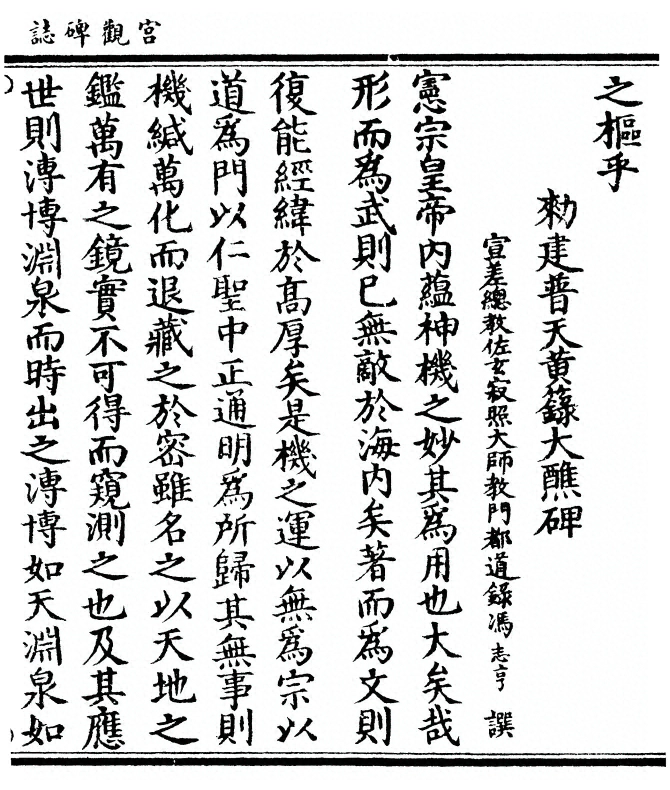 宮觀碑誌
之樞乎
勑建普天黃籙大醮碑
宣差總教佐玄寂照大師教門都道録馮志亨 撰
憲宗皇帝内蘊神機之妙其為用也大矣哉
形而為武則已無敵於海内矣著而為文則
復能經緯於髙厚矣是機之運以無爲宗以
道爲門以仁聖中正通明爲所歸其無事則
機緘萬化而退藏之於密雖名之以天地之
鑑萬有之鏡實不可得而窺測之也及其應
世則溥博淵泉而時出之溥博如天淵泉如